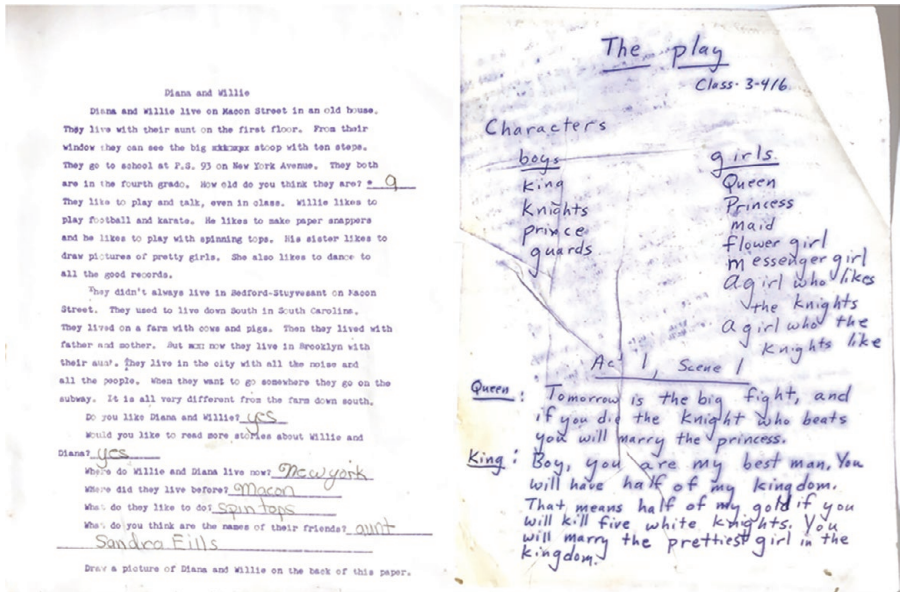 Diana and Willie
Diana and Willie live on Macon Street in an old house.
They live with their aunt on the first floor. From their
window they can see the big stoop with ten steps.
They go to school at P.S. 93 on New York Avenue. They both
are in the fourth grade. How old do you think they are? 9
They like to play and talk, even in class. Willie likes to
play football and karate. He likes to make paper snappers
and he likes to play with spinning tops. His sister likes to
draw pictures of pretty girls. She also likes to dance to
all the good records.
They didn't always live in Bedford-Stuyvesant on Macon
Street. They used to live down South in South Carolina.
They lived on a farm with cows and pigs. Then they lived with
father and mother. But now they live in Brooklyn with
their aunt. They live in the city with all the noise and
all the people. When they want to go somewhere they go on the
subway. It is all very different from the farm down south.
Do you like Diana and Willie? yes
Would you like to read more stories about Willie and
Diana? yes
Where do Willie and Diana live now? New york
Where did they live before? Macon
What do they like to do? spin tops
What do you think are the names of their friends? aunt
Sandra Eills
Draw a picture of Diana and Willie on the back of this paper.
The play
Class- 3-416
Characters
boys
king
Knights
prince
guards
girls
Queen
Princess
maid
flower girl
messenger girl
A girl who likes
the knights
A girl who the
knights like
Act 1, Scene 1
Queen: Tomorrow is the big fight, and
if you die the knight who beats
you will marry the princess.
King: Boy, you are my best man. You
will have half of my kingdom.
That means half of my gold if you
will kill five white knights. You
will marry the prettiest girl in the
kingdom.